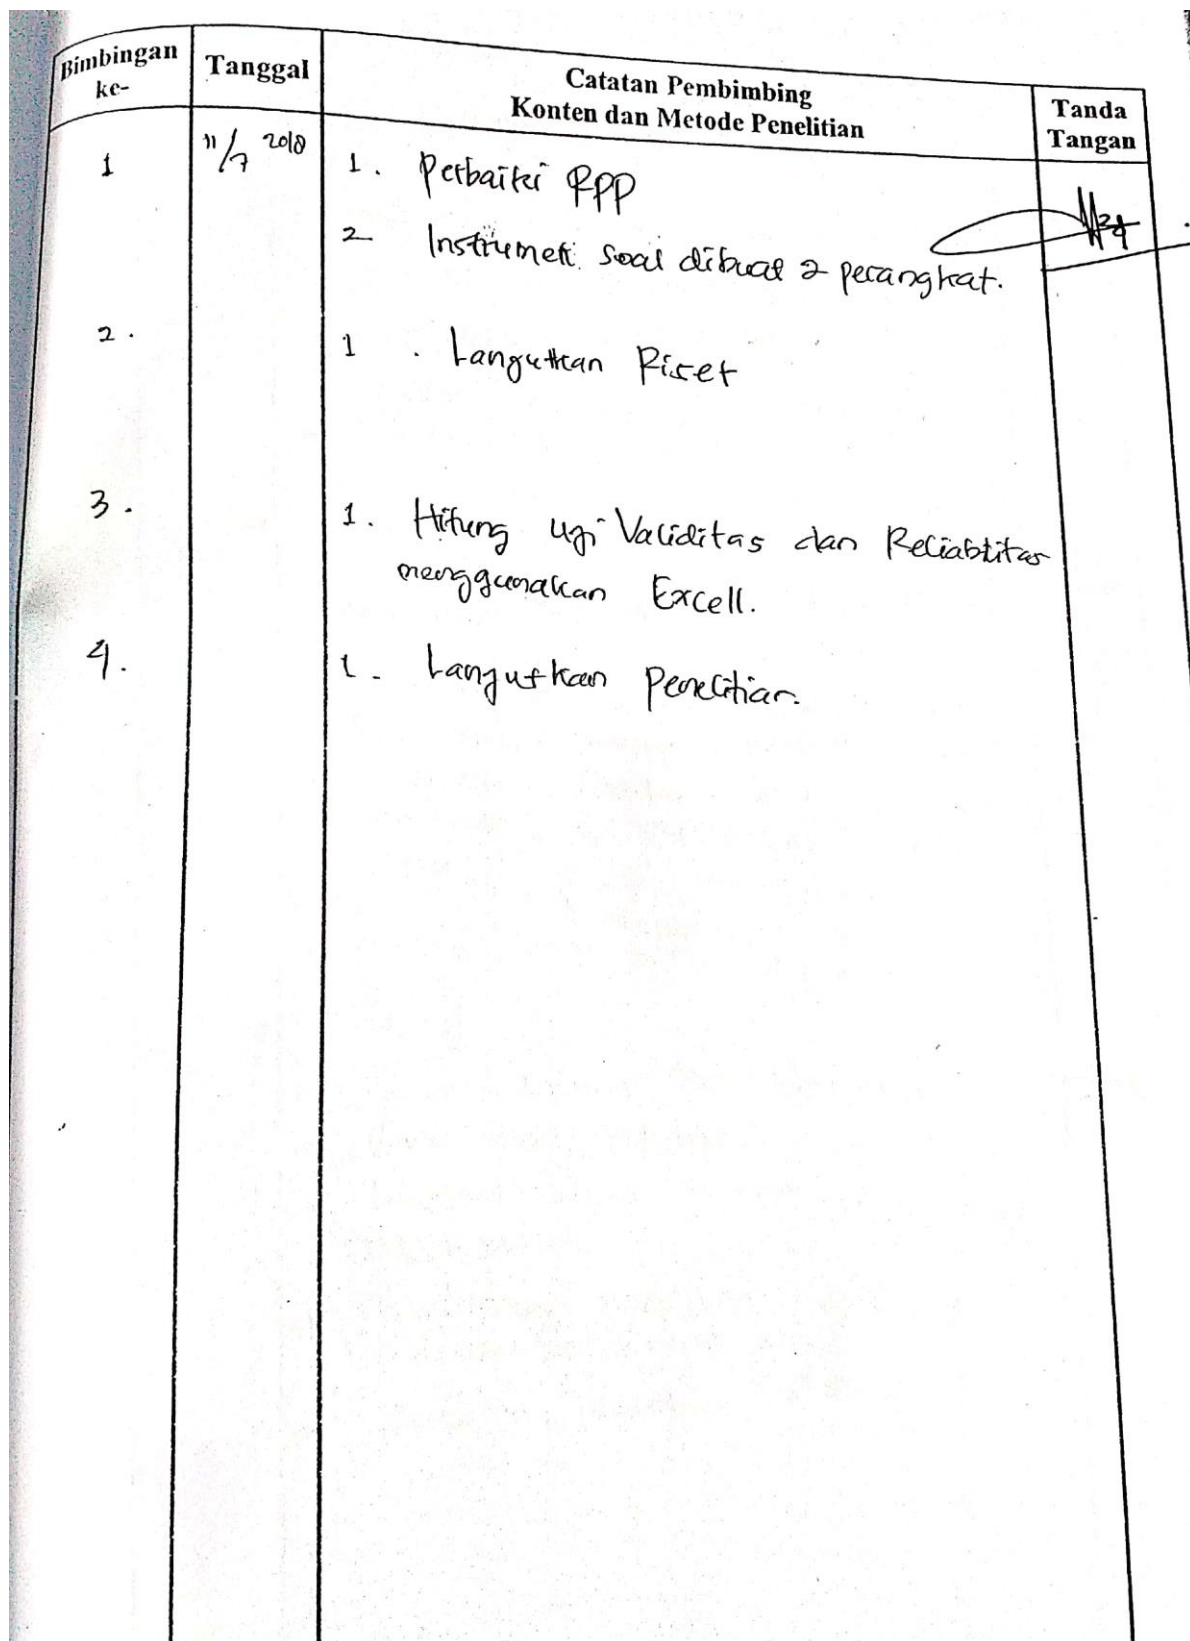 Bimbingan ke-
Tanggal
Catatan Pembimbing
Konten dan Metode Penelitian
Tanda
Tangan
1
11/7 2018
1. Perbaiki RPP
2 Instrumen soal dibuat 2 perangkat.
2.
1. Langutkan Riset
3.
1. Hitung ugi Validitas dan Reliabilitas
menggunakan Excell.
4.
1. Langutkan Penelitian.